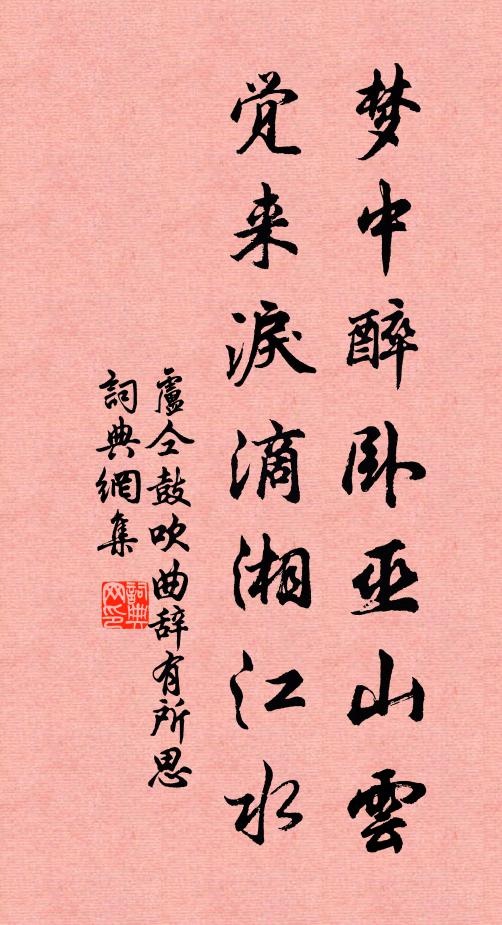 梦中醉卧巫山雲
覚来淚滴湘江水
盧仝鼓吹曲辞有所思
詞典網集
詞典
网印